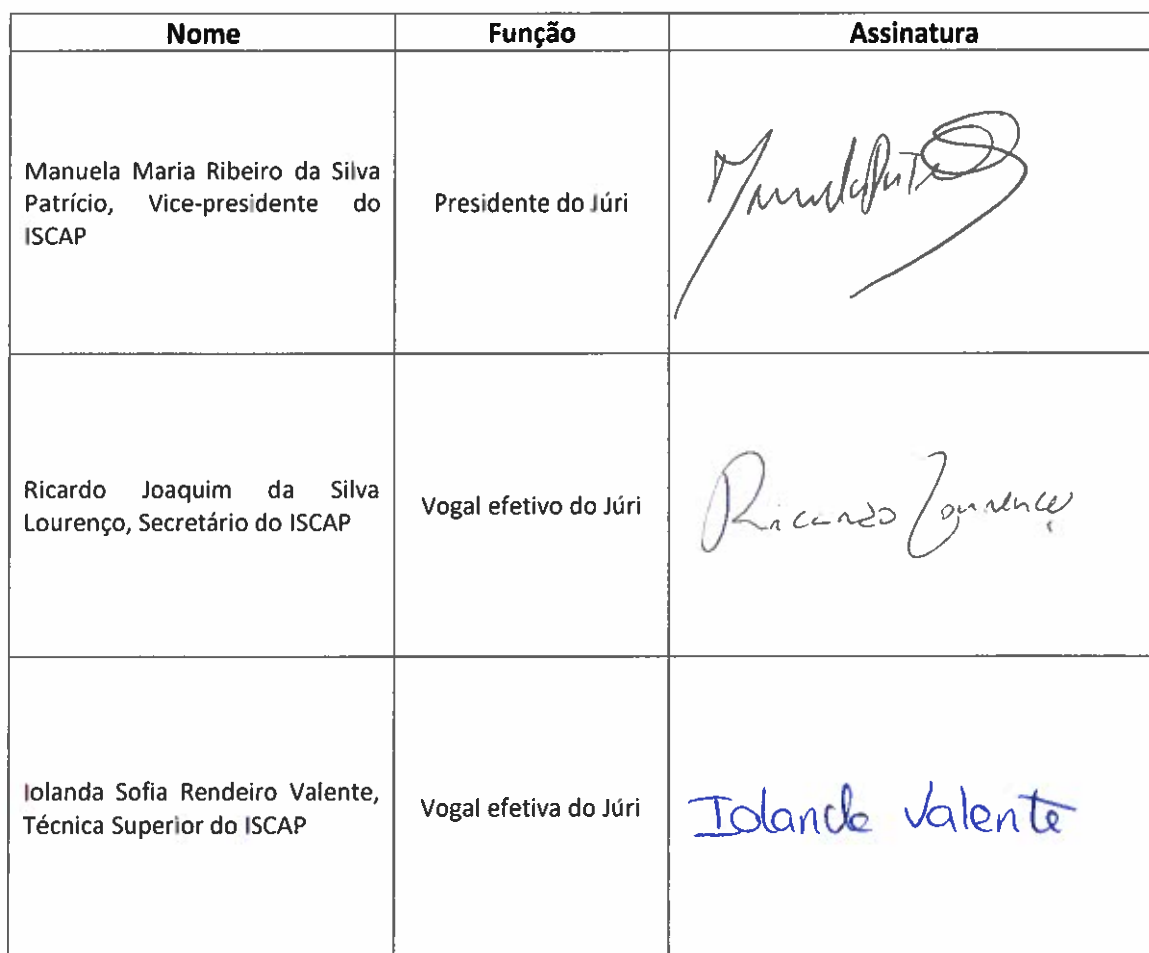 Nome Função Assinatura
Manuela Maria Ribeiro da Silva
Patrício, Vice-presidente do
ISCAP
Presidente do Júri
Ricardo Joaquim da Silva
Lourenço, Secretário do ISCAP
Vogal efetivo do Júri
Ricardo Lourenço
Iolanda Sofia Rendeiro Valente,
Técnica Superior do ISCAP
Vogal efetiva do Júri
Iolanda Valente